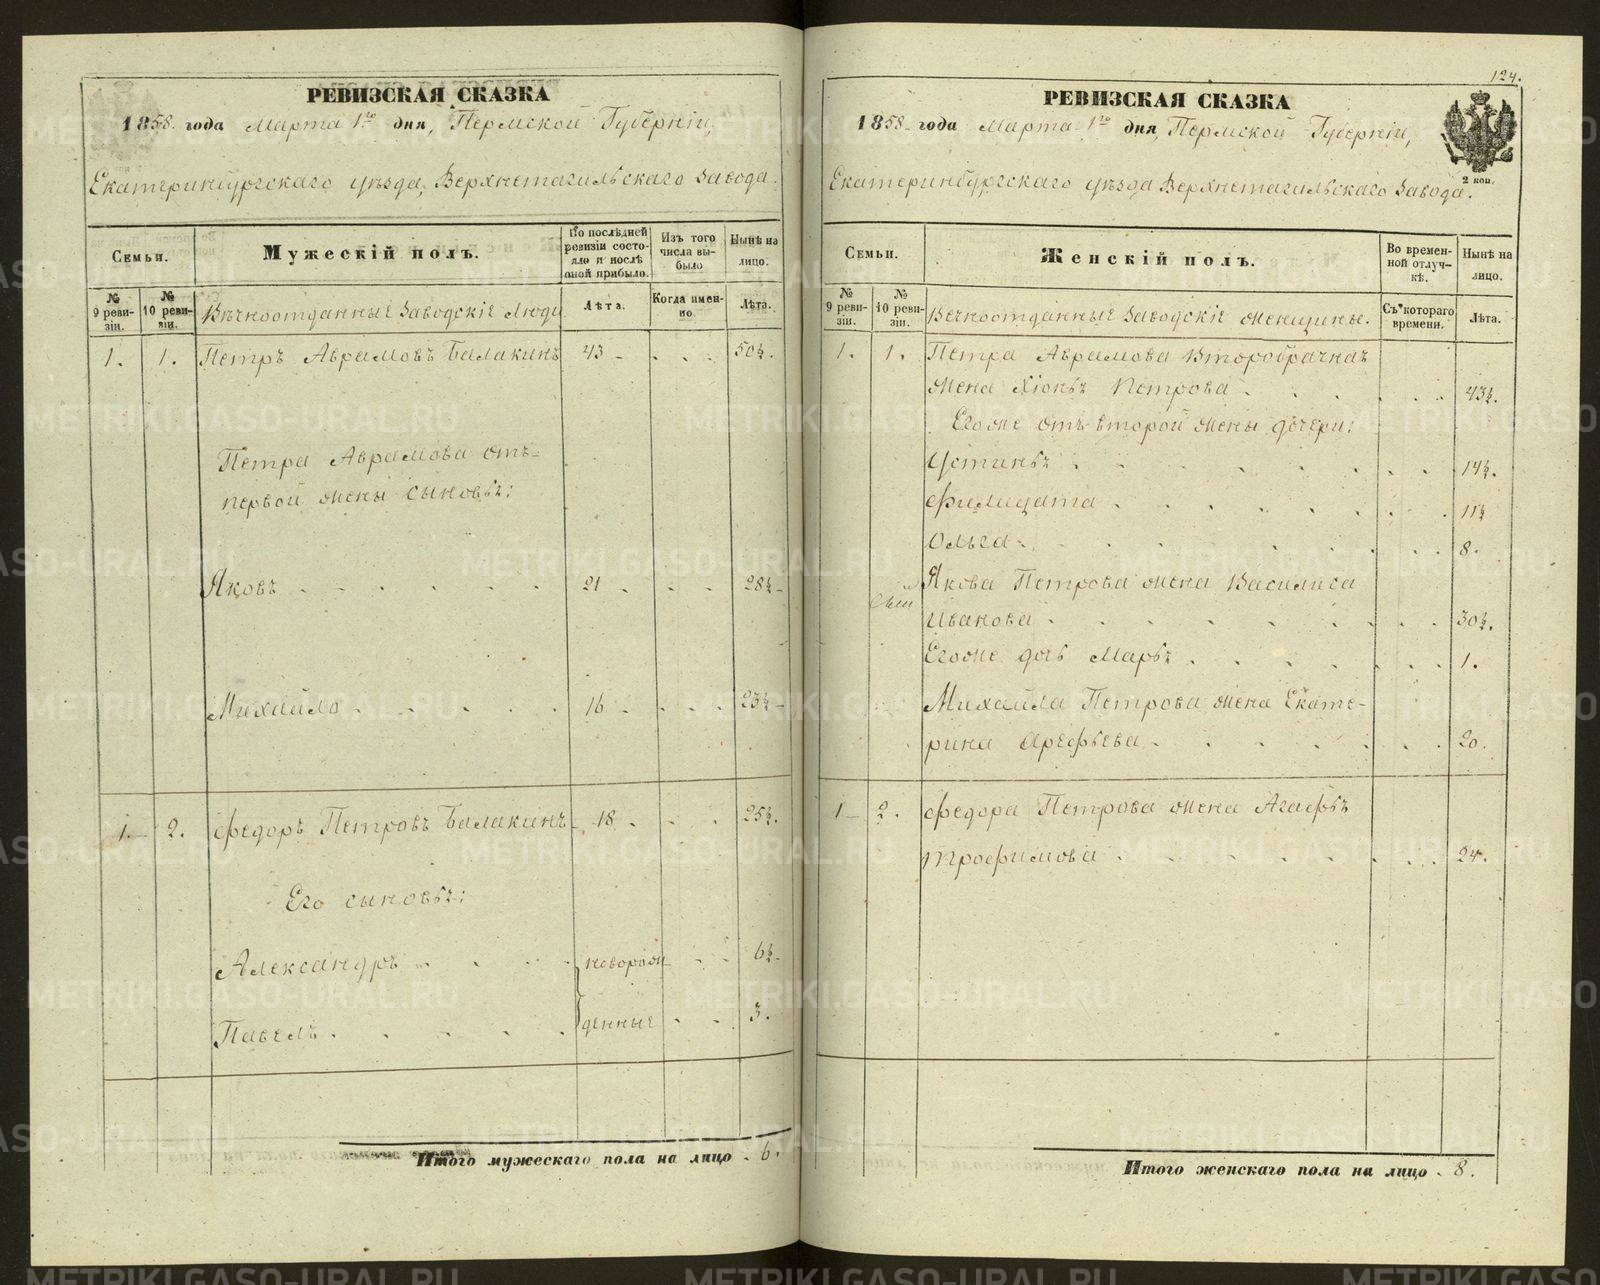 РЕВИЗСКАЯ СКАЗКА
1858 года Марта 1го дня, Пермской Губерніи,
Екатеринбургскаго уѣзда, Верхнетагильскаго Завода.
Семьи.
Мужескій полъ.
По послѣдней ревизіи состояло и послѣ оной прибыло.
Изъ того числа выбыло
Нынѣ на лицо.
№ 9 ревизіи.
№ 10 ревизіи.
Вѣчноотданные Заводскіе Люди
Лѣта.
Когда именно.
Лѣта.
1. 1. Петръ Аврамовъ Балакинъ 43 - . . . 50½.
Петра Аврамова отъ-
первой жены сыновья:
Яковъ . . . . . 21 . . . 28½
Михайло . . . . . 16 . . . 23½
1. 2. Федоръ Петровъ Балакинъ 18 . . . 25½.
Его сыновья:
Александръ . . . . новорож . . 6½
Павелъ . . . . . денные . . 3.
Итого мужескаго пола на лицо . 6.
124.
РЕВИЗСКАЯ СКАЗКА
1858 года Марта 1го дня, Пермской Губерніи,
2 коп.
Екатеринбургскаго уѣзда Верхнетагильскаго Завода.
Семьи.
Женскій полъ.
Во временной отлучкѣ.
Нынѣ на лицо.
№ 9 ревизіи.
№ 10 ревизіи.
Вечноотданные Заводскіе женщины.
Съ котораго времени.
Лѣта.
1. 1. Петра Аврамова Второбрачная
жена Хіонья Петрова . . . . . 43½.
Егоже отъ второй жены дочери:
Устинья . . . . . 14½.
Филицата . . . . . 11½
Ольга . . . . . 8.
Якова Петрова жена Василиса
Иванова . . . . . 30½.
Егоже дочь Марья . . . . . 1.
Михайла Петрова жена Екате-
рина Арефьева . . . . . 20.
1 2. Федора Петрова жена Агафья
Трофимова . . . . . 24.
Итого женскаго пола на лицо . 8.
METRIKI.GASO-URAL.RU